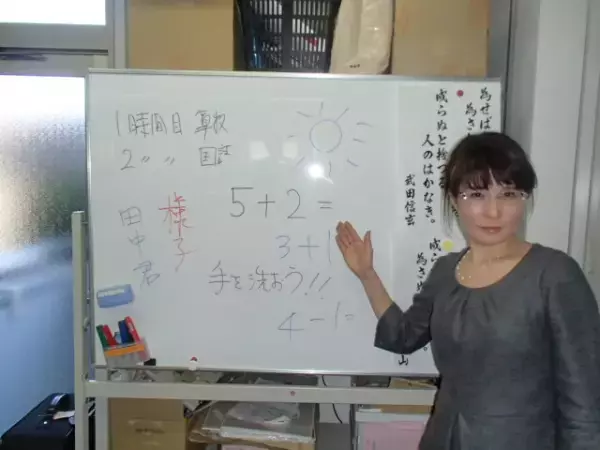 1時間目 算数
2〃 〃 国語
5+2=
3+1
手を洗おう!!
4-1=
様子
田中君
為せば
為さ
成らぬと捨つる
人のはかなき。
武田信玄
成ら
為さ
山